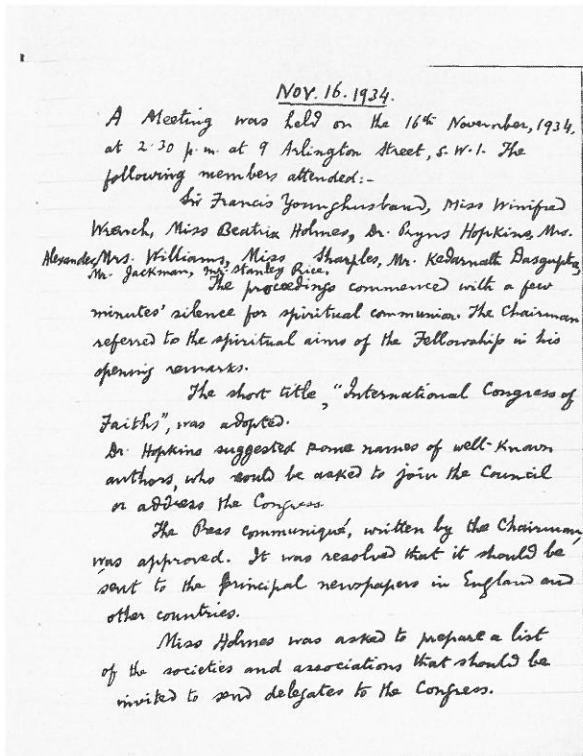 Nov. 16. 1934.
A Meeting was held on the 16th November, 1934,
at 2.30 p.m. at 9 Arlington Street, S.W.1. The
following members attended:-
Sir Francis Younghusband, Miss Winifred
Wrench, Miss Beatrix Holmes, Dr. Pryns Hopkins, Mrs.
Alexander, Mrs. Williams, Miss Sharples, Mr. Kedarnath Dasgupta,
Mr. Jackman, Mr. Stanley Rice.
The proceedings commenced with a few
minutes' silence for spiritual communion. The Chairman
referred to the spiritual aims of the Fellowship in his
opening remarks.
The short title, "International Congress of
Faiths", was adopted.
Dr. Hopkins suggested some names of well-known
authors, who could be asked to join the Council
or address the Congress.
The Press communiqué, written by the Chairman,
was approved. It was resolved that it should be
sent to the principal newspapers in England and
other countries.
Miss Holmes was asked to prepare a list
of the societies and associations that should be
invited to send delegates to the Congress.